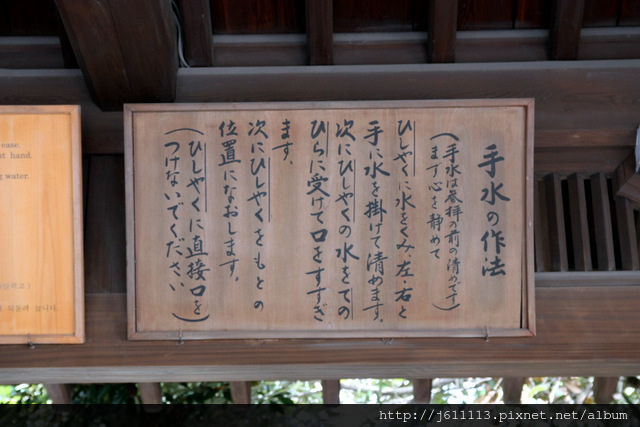 手水の作法
(手水は参拝の前の清めです)
まず心を静めて
ひしゃくに水をくみ、左・右と
手に水を掛けて清めます。
次にひしゃくの水をての
ひらに受けて口をすすぎ
ます。
次にひしゃくをもとの
位置になおします。
(ひしゃくに直接口を
つけないでください)
ease.
t hand.
g water.
http://j611113.pixnet.net/album